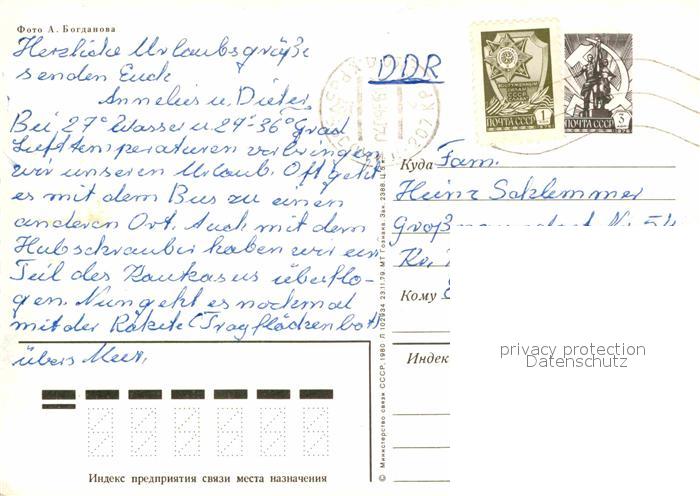 Фото А. Богданова
Herzliche Urlaubsgrüße
senden Euch
Annelies u. Dieter
Bei 27° Wasser u. 29°-36° Grad
Lufttemperaturen verbringen
wir unseren Urlaub. Oft geht
es mit dem Bus zu einen
anderen Ort. Auch mit dem
Hubschrauber haben wir ein
Teil des Kaukasus überflo-
gen. Nun geht es nochmal
mit der Rakete (Tragflächenboot)
übers Meer.
DDR
ПОЧТА СССР 1
ПОЧТА СССР 3
Куда Fam.
Heinz Schlemmer
Nr. 54
Кому
Индекс
privacy protection
Datenschutz
Индекс предприятия связи места назначения
© Министерство связи СССР, 1980 Л 102934 23.11.79. МТ Гознака. Зак. 2388. Ц. 5